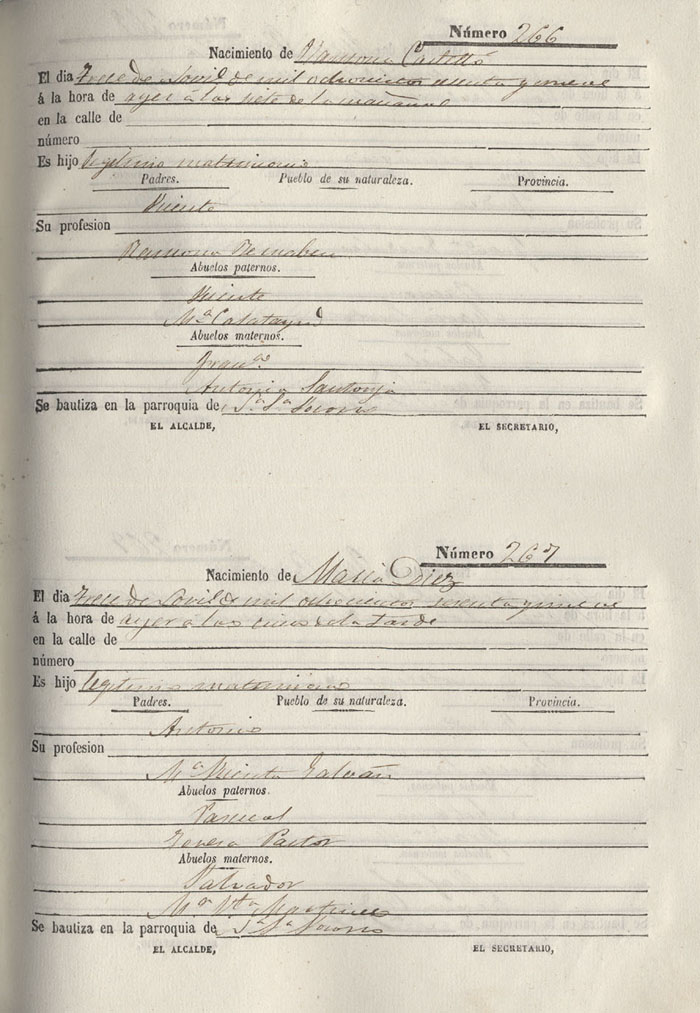 Número 266
Nacimiento de Ramona Castelló
El dia Trece de Abril de mil ochocientos sesenta y nueve
á la hora de ayer á las siete de la mañana
en la calle de
número
Es hijo legitimo matrimonio
Padres. Pueblo de su naturaleza. Provincia.
Vicente
Su profesion
Ramona
Abuelos paternos.
Vicente
Mª Calatayud
Abuelos maternos.
Franco.
Antonia Santonja
Se bautiza en la parroquia de
EL ALCALDE, EL SECRETARIO,
Número 267
Nacimiento de Maria Diez
El dia Trece de Abril de mil ochocientos sesenta y nueve
á la hora de ayer á las cinco de la tarde
en la calle de
número
Es hijo legitimo matrimonio
Padres. Pueblo de su naturaleza. Provincia.
Antonio
Su profesion
Mª Vicenta Galvañ
Abuelos paternos.
Pascual
Teresa Pastor
Abuelos maternos.
Salvador
Mª Vta Martinez
Se bautiza en la parroquia de
EL ALCALDE, EL SECRETARIO,